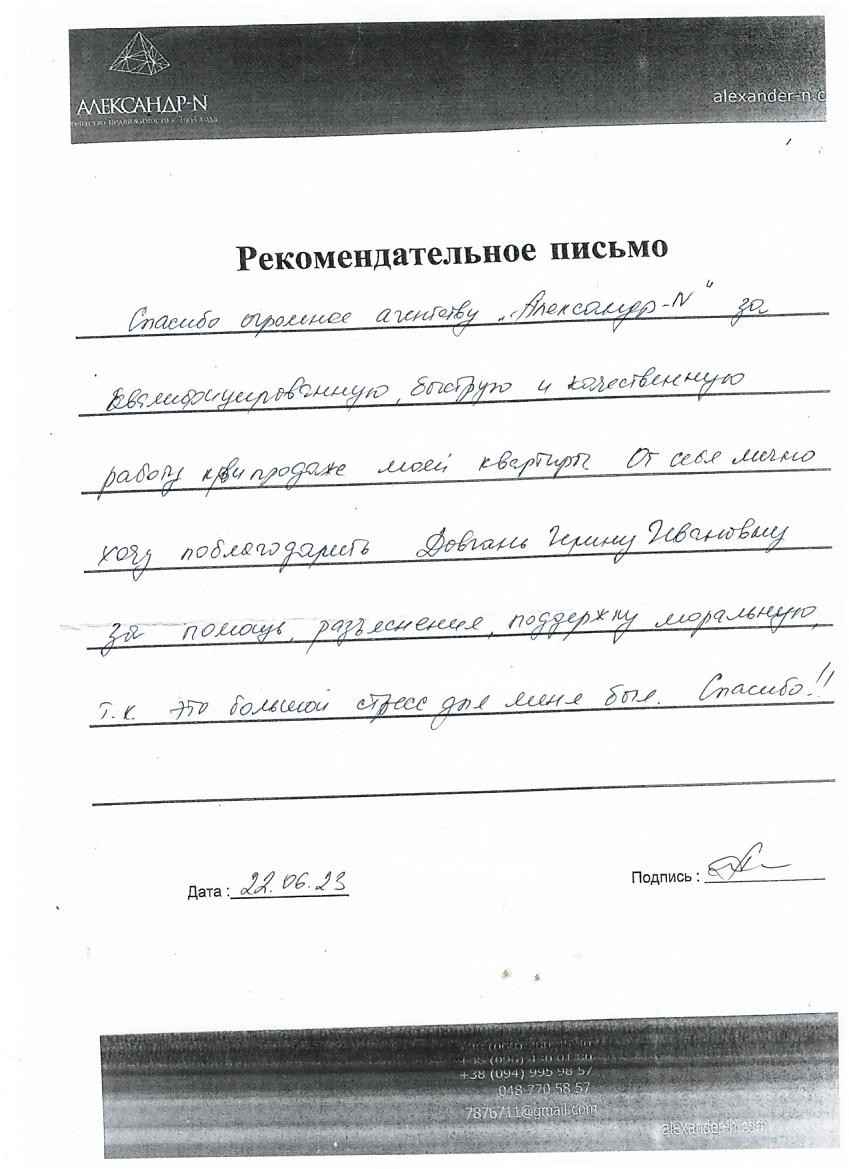 АЛЕКСАНДР-N
alexander-n.c
Рекомендательное письмо
Спасибо огромное агентству „Александр-N" за
квалифицированную, быструю и качественную
работу при продаже моей квартиры. От себя лично
хочу поблагодарить Довгань Ирину Ивановну
за помощь, разъяснения, поддержку моральную,
т.к. это большой стресс для меня был. Спасибо!!
Дата : 22.06.23
Подпись :
+38 (094) 995 98 57
048 770 58 57
7876711@gmail.com
alexander-n.com